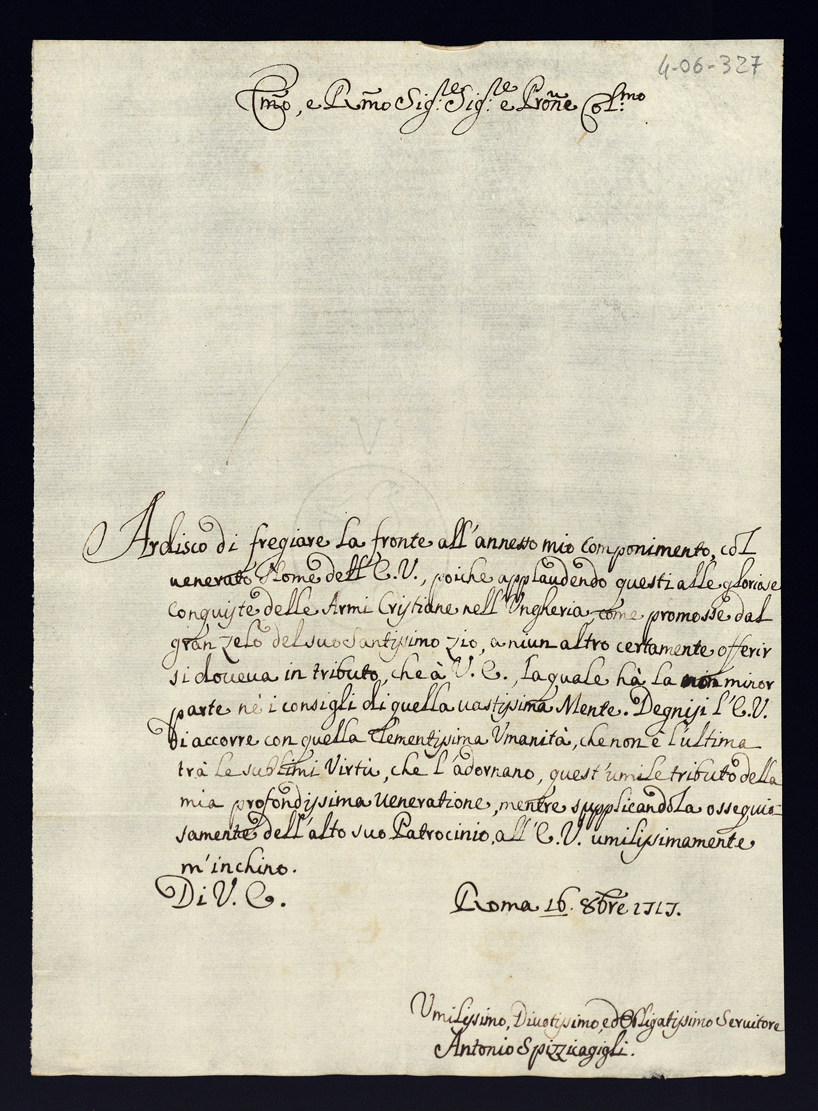 4-06-327
Em̃o, e Rm̃o Sig.re Sig.re e Pron̄e Col.mo
Ardisco di fregiare la fronte all'annesso mio componimento, col
venerato Nome dell'E.V., poiche applaudendo questi alle gloriose
conquiste delle Armi Cristiane nell'Ungheria, come promosse dal
gran zelo del suo Santissimo zio, a niun altro certamente offerir
si doveva in tributo, che à V.E., la quale hà la non minor
parte né i consigli di quella vastissima Mente. Degnisi l'E.V.
di accorre con quella Clementissima Umanità, che non è l'ultima
trà le sublimi Virtù, che l'adornano, quest'umile tributo della
mia profondissima veneratione, mentre supplicandola ossequio=
samente dell'alto suo Patrocinio, all'E.V. umilissimamente
m'inchino.
Di V.E.
Roma 16. 8bre 1717.
Umilissimo, Divotissimo, ed Obligatissimo Servitore
Antonio Spizzicagigli.